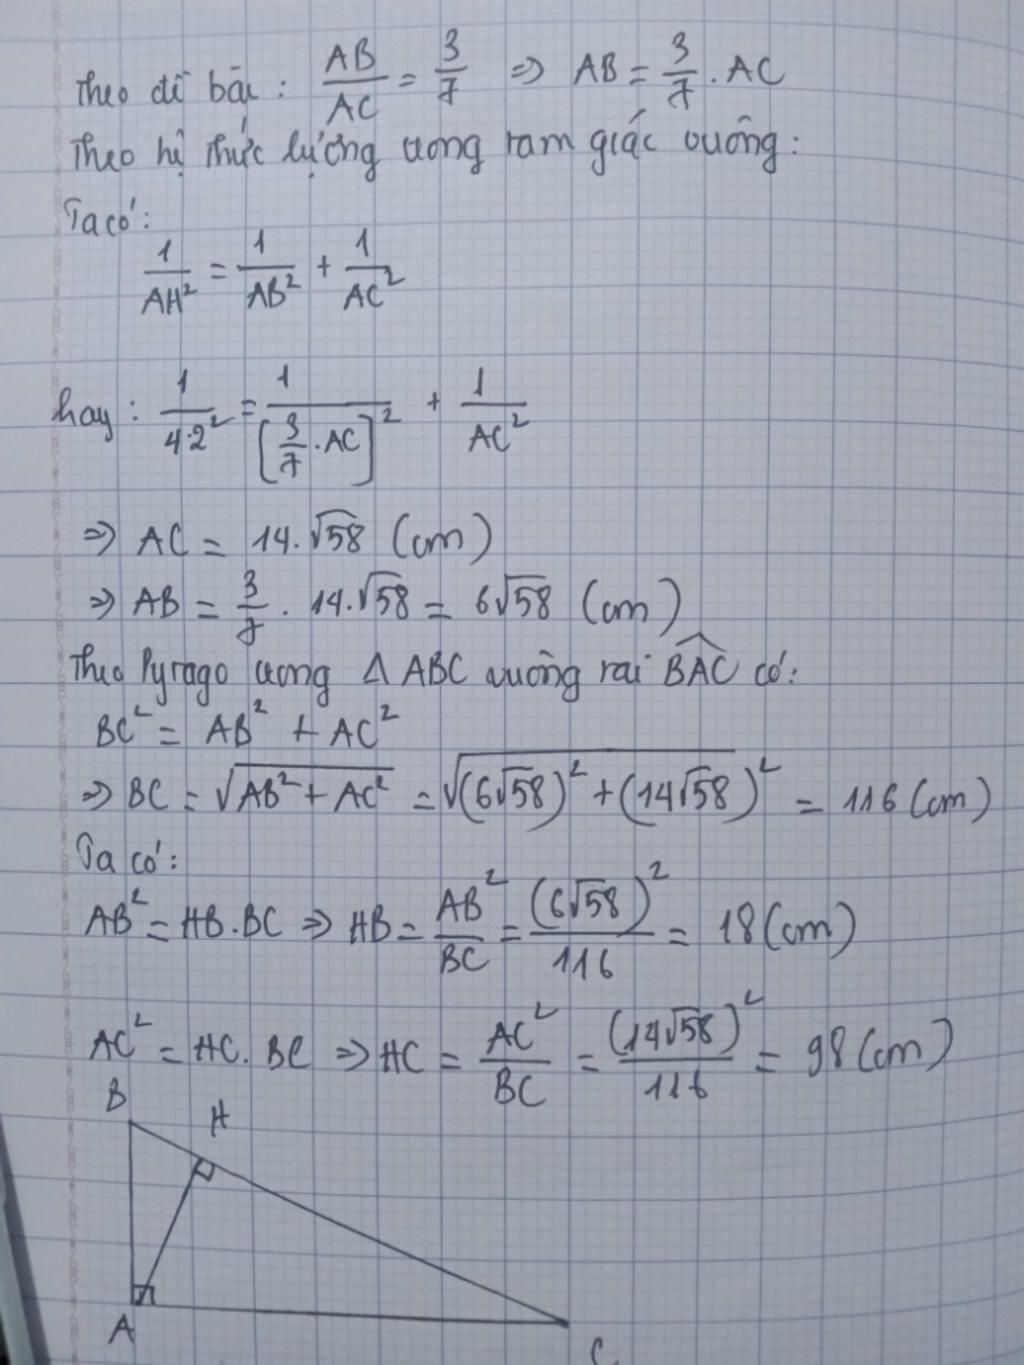 Theo đề bài : AB/AC = 3/7 => AB = 3/7 . AC
Theo hệ thức lượng trong tam giác vuông :
Ta có :
1/AH² = 1/AB² + 1/AC²
hay : 1/42² = 1/[3/7 . AC]² + 1/AC²
=> AC = 14.√58 (cm)
=> AB = 3/7 . 14.√58 = 6√58 (cm)
Theo Pytago trong Δ ABC vuông tại BAC có :
BC² = AB² + AC²
=> BC = √(AB² + AC²) = √((6√58)² + (14√58)²) = 116 (cm)
Ta có :
AB² = HB . BC => HB = AB²/BC = (6√58)²/116 = 18 (cm)
AC² = HC . BC => HC = AC²/BC = (14√58)²/116 = 98 (cm)
B
H
A
C